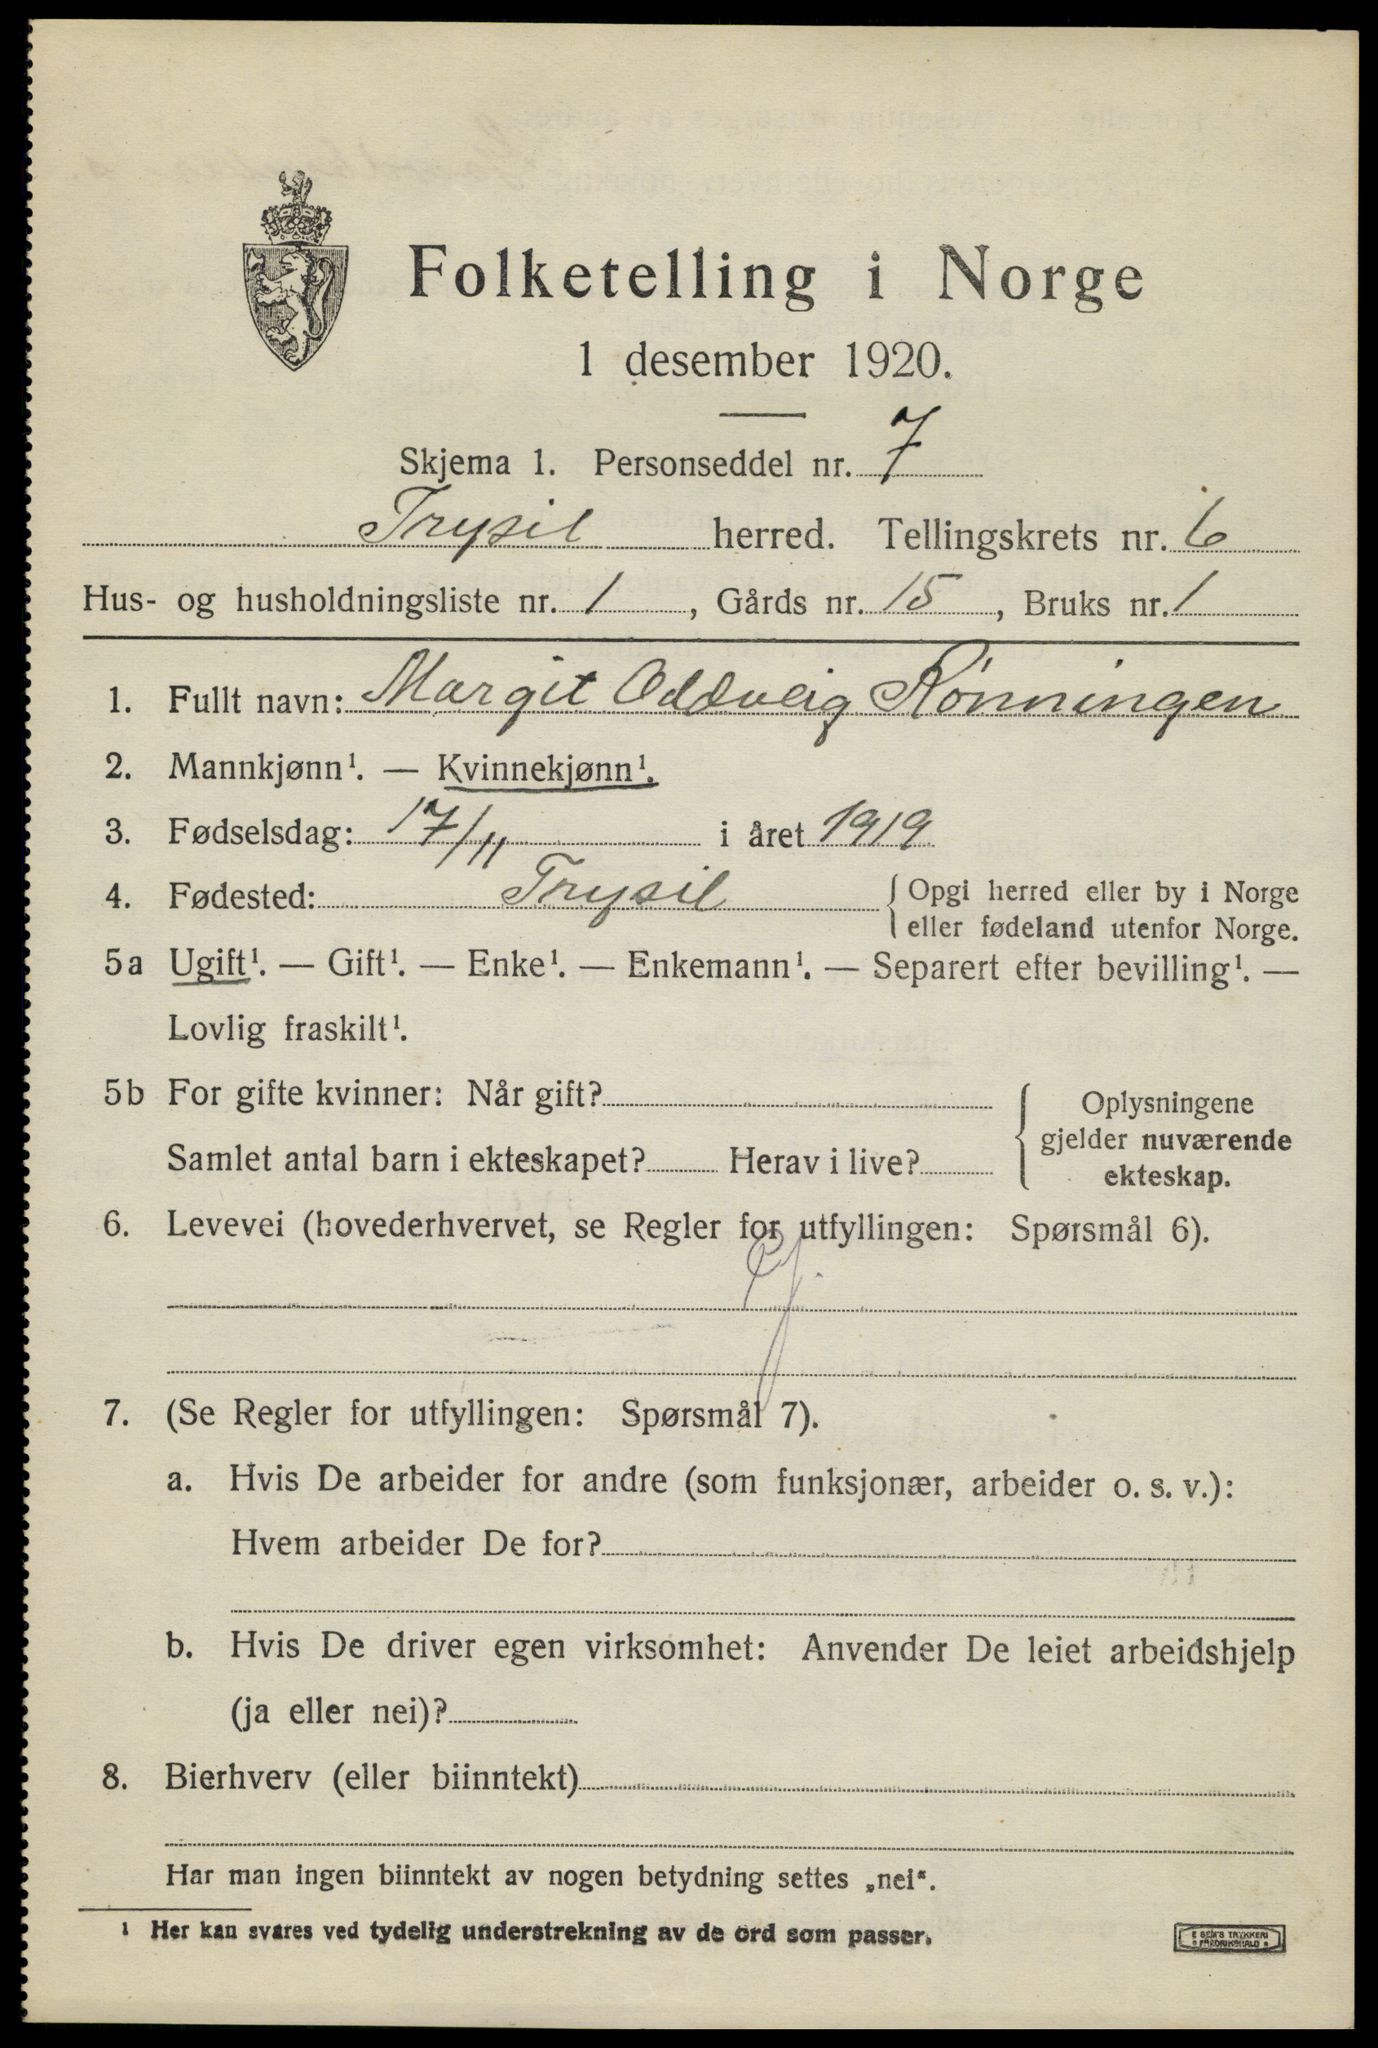 Folketelling i Norge
1 desember 1920.
Skjema 1. Personseddel nr. 7
Trysil herred. Tellingskrets nr. 6
Hus- og husholdningsliste nr. 1, Gårds nr. 15, Bruks nr. 1
1. Fullt navn: Margit Oddveig Rønningen
2. Mannkjønn¹. — Kvinnekjønn¹.
3. Fødselsdag: 17/11 i året 1919
4. Fødested: Trysil { Opgi herred eller by i Norge
eller fødeland utenfor Norge.
5a Ugift¹. — Gift¹. — Enke¹. — Enkemann¹. — Separert efter bevilling¹. —
Lovlig fraskilt¹.
5b For gifte kvinner: Når gift?
Samlet antal barn i ekteskapet? Herav i live?
{ Oplysningene
gjelder nuværende
ekteskap.
6. Levevei (hovederhvervet, se Regler for utfyllingen: Spørsmål 6).
7. (Se Regler for utfyllingen: Spørsmål 7).
a. Hvis De arbeider for andre (som funksjonær, arbeider o. s. v.):
Hvem arbeider De for?
b. Hvis De driver egen virksomhet: Anvender De leiet arbeidshjelp
(ja eller nei)?
8. Bierhverv (eller biinntekt)
Har man ingen biinntekt av nogen betydning settes „nei“.
¹ Her kan svares ved tydelig understrekning av de ord som passer.
E SEM'S TRYKKERI
FREDRIKSHALD